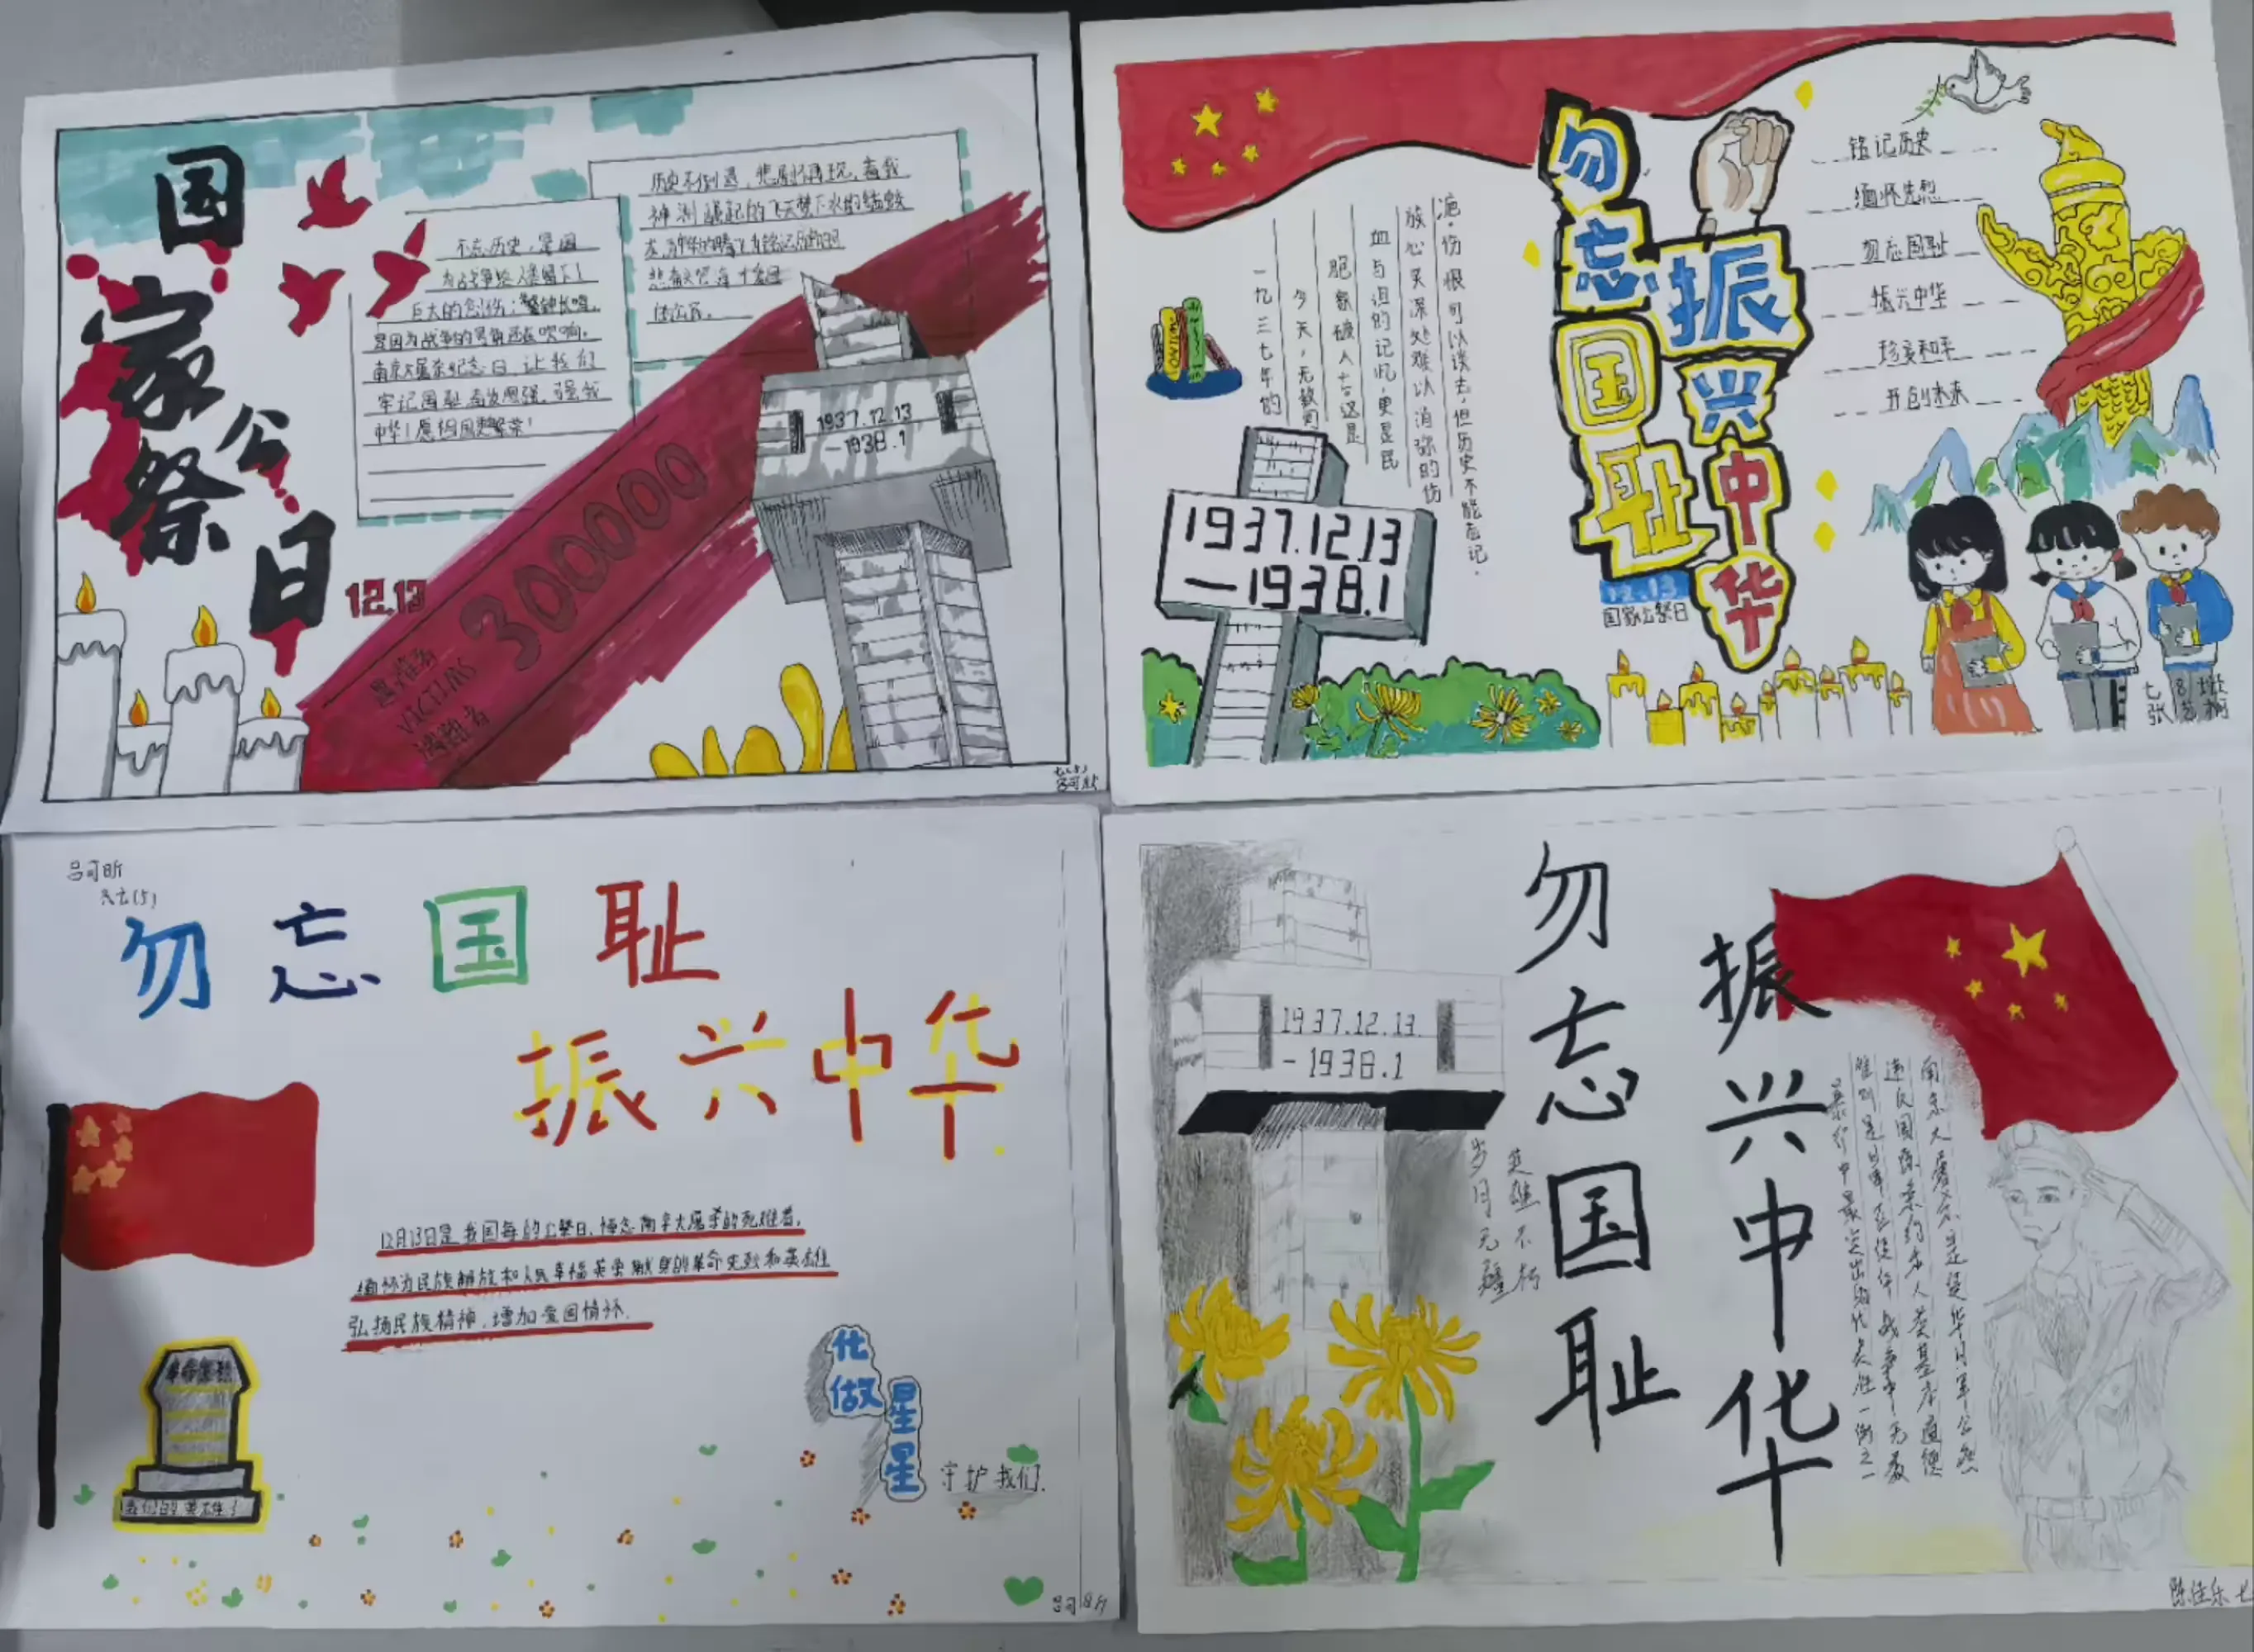 国家公祭日
12.13
不忘历史,是因
为战争给人类留下了
巨大的创伤;警钟长鸣,
是因为战争的号角还在吹响。
南京大屠杀纪念日,让我们
牢记国耻
中华!愿祖国更繁荣!
历史不倒退,悲剧不再现。
300000
遇难者
VICTIMS
遭難者
1937.12.13
-1938.1
勿忘国耻
振兴中华
12.13
国家公祭日
铭记历史
缅怀先烈
勿忘国耻
振兴中华
珍爱和平
开创未来
一九三七年的
今天,无数同
胞家破人亡。这是
血与泪的记忆,更是民
族心灵深处难以消弥的伤
疤。伤恨可以淡去,但历史不能忘记.
1937.12.13
-1938.1
吕可昕
勿忘国耻
振兴中华
12月13日是我国每的公祭日,悼念南京大屠杀的死难者,
缅怀为民族解放和人民幸福英勇献身的革命先烈和英雄
弘扬民族精神,增加爱国情怀.
化做
星星
守护我们.
勿忘国耻
振兴中华
1937.12.13
-1938.1
英雄不朽
岁月无疆
南京大屠杀是侵华日军公然
违反国际条约和人类基本道德
暴行中最突出的代表性一例之一
陈佳乐